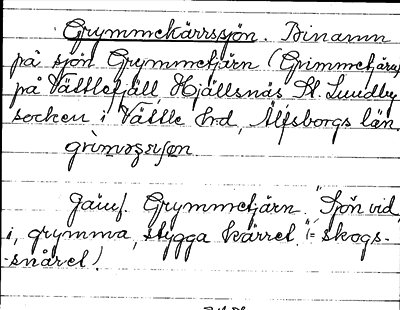 Grymmekärrssjön. Binamn
på sjön Grymmetjärn (Grimmetjärn)
på Vättlefjäll, Hjällsnäs St. Lundby
socken i Vättle hrd, Älfsborgs län.
Jämf. Grymmetjärn. "Sjön vid
i, grymma, stygga kärret" (= skogs-
-snåret).